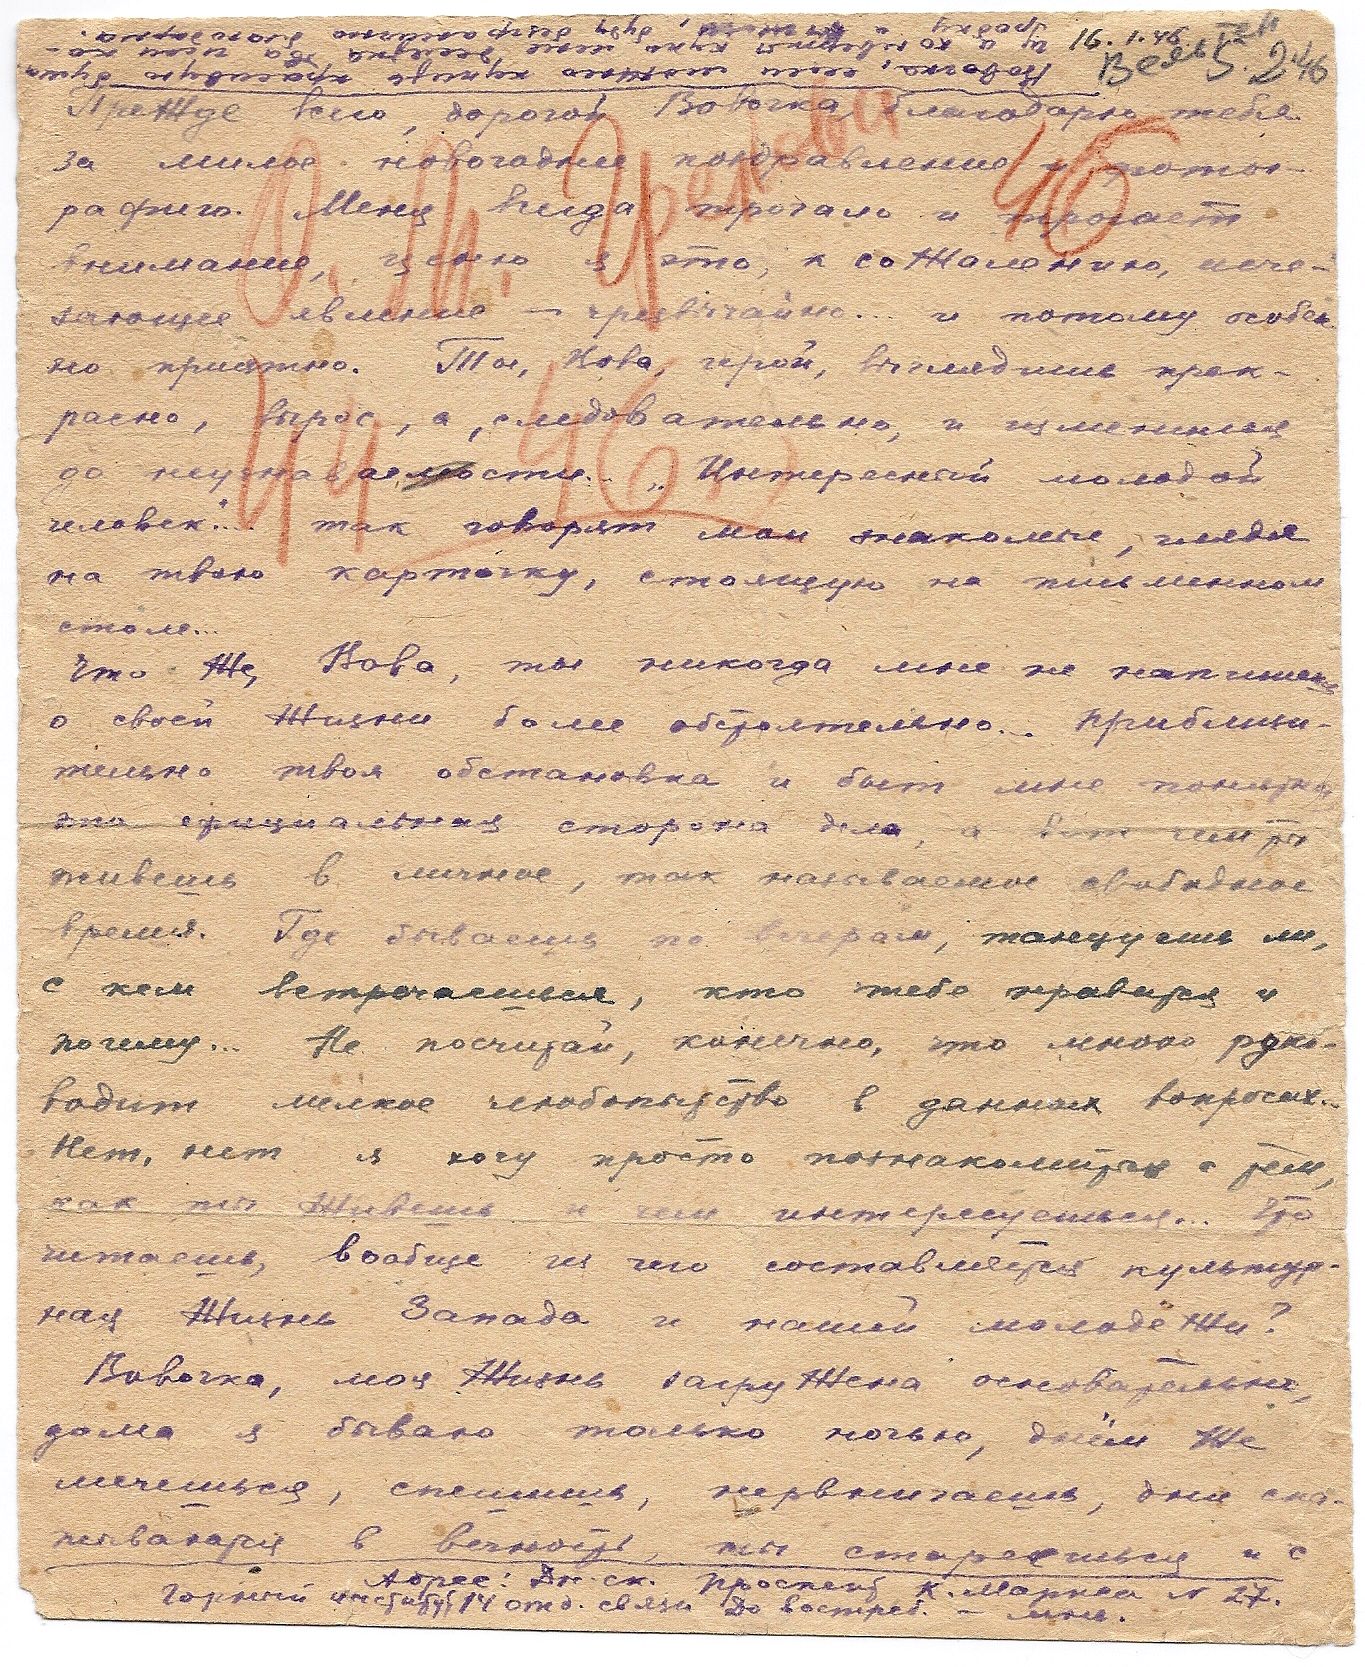 16. 1.46
Вельтен
5. 2.46
Вовочка, если можно купить красивую бума
гу и конверты
буду безгранично благодарна.
Прежде всего, дорогой Вовочка, благодарю тебя
за милое новогоднее поздравление и фотог-
рафию. Меня всегда трогало и трогает
внимание, ценю я это, к сожалению, исче-
зающее явление – чрезвычайно... и потому особен
но приятно. Ты, Вова, герой, выглядишь прек-
расно, вырос, а, следовательно, и изменился
до неузнаваемости... „Интересный молодой
человек"... так говорят мои знакомые, глядя
на твою карточку, стоящую на письменном
столе...
Что же, Вова, ты никогда мне не напишешь
о своей жизни более обстоятельно... Приблизи-
тельно твоя обстановка и быт мне понятны
это официальная сторона дела, а вот чем ты
живешь в личное, так называемое свободное
время. Где бываешь по вечерам, танцуешь ли,
с кем встречаешься, кто тебе нравится и
почему... Не посчитай, конечно, что мною руко-
водит мелкое любопытство в данных вопросах...
Нет, нет я хочу просто познакомиться с тем,
как ты живешь и чем интересуешься... Что
читаешь, вообще из чего составляется культур-
ная жизнь Запада и нашей молодёжи?
Вовочка, моя жизнь загружена основательно,
дома я бываю только ночью, днём же
мечешься, спешишь, нервничаешь, дни ска-
тываются в вечность, ты старе ешься и с
Адрес: Дн-ск. Проспект К. Маркса N 27.
Горный институт 14 отд. связи До востреб. – мне.
О. П.
46
44 46